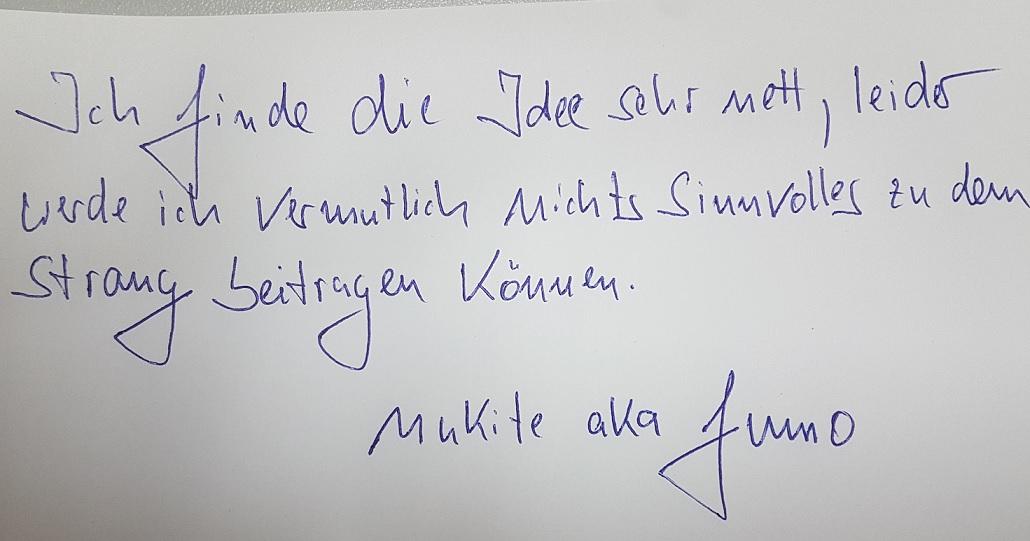 Ich finde die Idee sehr nett, leider
werde ich vermutlich nichts Sinnvolles zu dem
Strang beitragen können.
Mukite aka